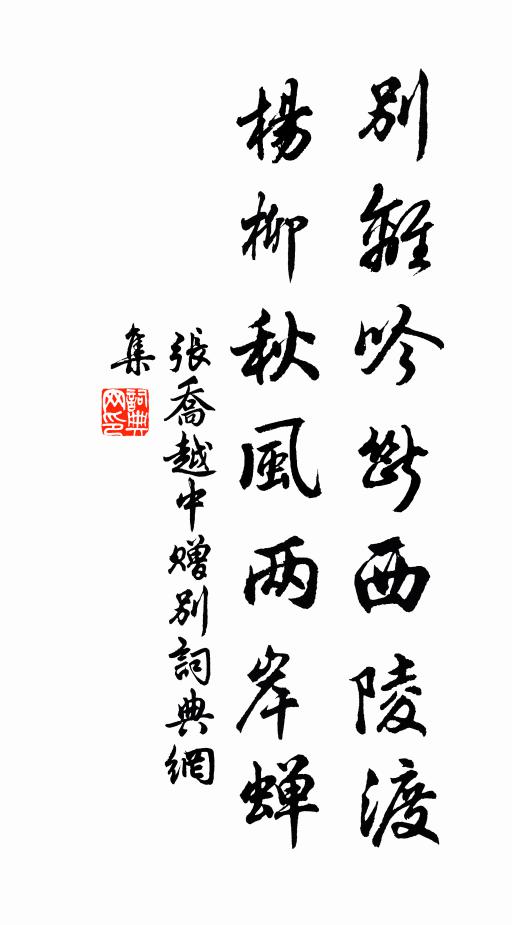 別離吟斷西陵渡
楊柳秋風两岸蟬
張喬越中贈別詞典網
集
詞典
网印